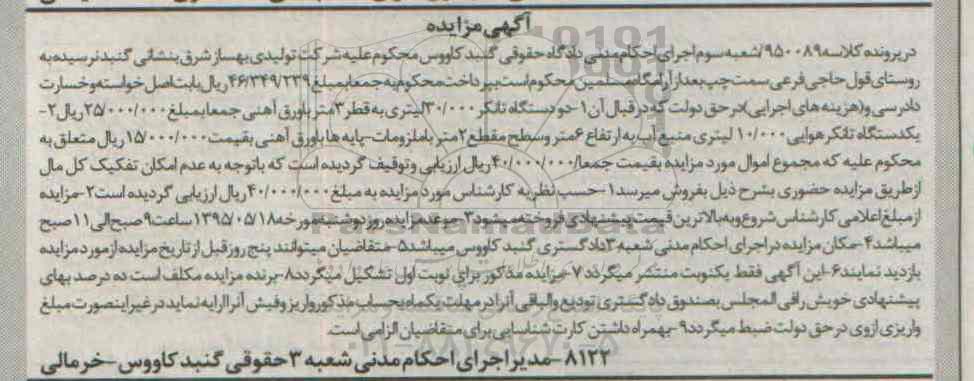 آگهی مزایده
در پرونده کلاسه ۹۵۰۰۸۹/شعبه سوم اجرای احکام مدنی دادگاه حقوقی گنبد کاووس محکوم علیه شرکت تولیدی بهساز شرق بنشانی گنبد نرسیده به
روستای قول حاجی فرعی سمت چپ بعد از آرامگاه مسلمین محکوم است بپرداخت محکوم به جمعا بمبلغ ۴۶/۳۴۹/۲۳۹ ریال بابت اصل خواسته و خسارت
دادرسی و (هزینه های اجرایی) در حق دولت که در قبال آن ۱-دو دستگاه تانکر ۳۰/۰۰۰ لیتری به قطر ۳ متر باورق آهنی جمعا بمبلغ ۲۵/۰۰۰/۰۰۰ ریال ۲-
یکدستگاه تانکر هوایی ۱۰/۰۰۰ لیتری منبع آب به ارتفاع ۶ متر و سطح مقطع ۲ متر با ملزومات-پایه ها باورق آهنی بقیمت ۱۵/۰۰۰/۰۰۰ ریال متعلق به
محکوم علیه که مجموع اموال مورد مزایده بقیمت جمعا ۴۰/۰۰۰/۰۰۰ ریال ارزیابی و توقیف گردیده است که باتوجه به عدم امکان تفکیک کل مال
از طریق مزایده حضوری بشرح ذیل بفروش میرسد ۱-حسب نظریه کارشناس مورد مزایده به مبلغ ۴۰/۰۰۰/۰۰۰ ریال ارزیابی گردیده است ۲-مزایده
از مبلغ اعلامی کارشناس شروع و به بالاترین قیمت پیشنهادی فروخته میشود ۳-موعد مزایده روز دوشنبه مورخه ۱۳۹۵/۰۵/۱۸ ساعت ۹ صبح الی ۱۱ صبح
میباشد ۴-مکان مزایده در اجرای احکام مدنی شعبه ۳ دادگستری گنبد کاووس میباشد ۵-متقاضیان میتوانند پنج روز قبل از تاریخ مزایده از مورد مزایده
بازدید نمایند ۶-این آگهی فقط یکنوبت منتشر میگردد ۷-مزایده مذکور برای نوبت اول تشکیل میگردد ۸-برنده مزایده مکلف است ده درصد بهای
پیشنهادی خویش رافی المجلس بصندوق دادگستری تودیع والباقی آنرا در مهلت یکماه بحساب مذکور واریز و فیش آنرا ارایه نماید در غیر اینصورت مبلغ
واریزی از وی در حق دولت ضبط میگردد ۹-بهمراه داشتن کارت شناسایی برای متقاضیان الزامی است.
۸۱۲۲-مدیر اجرای احکام مدنی شعبه ۳ حقوقی گنبد کاووس-خرمالی